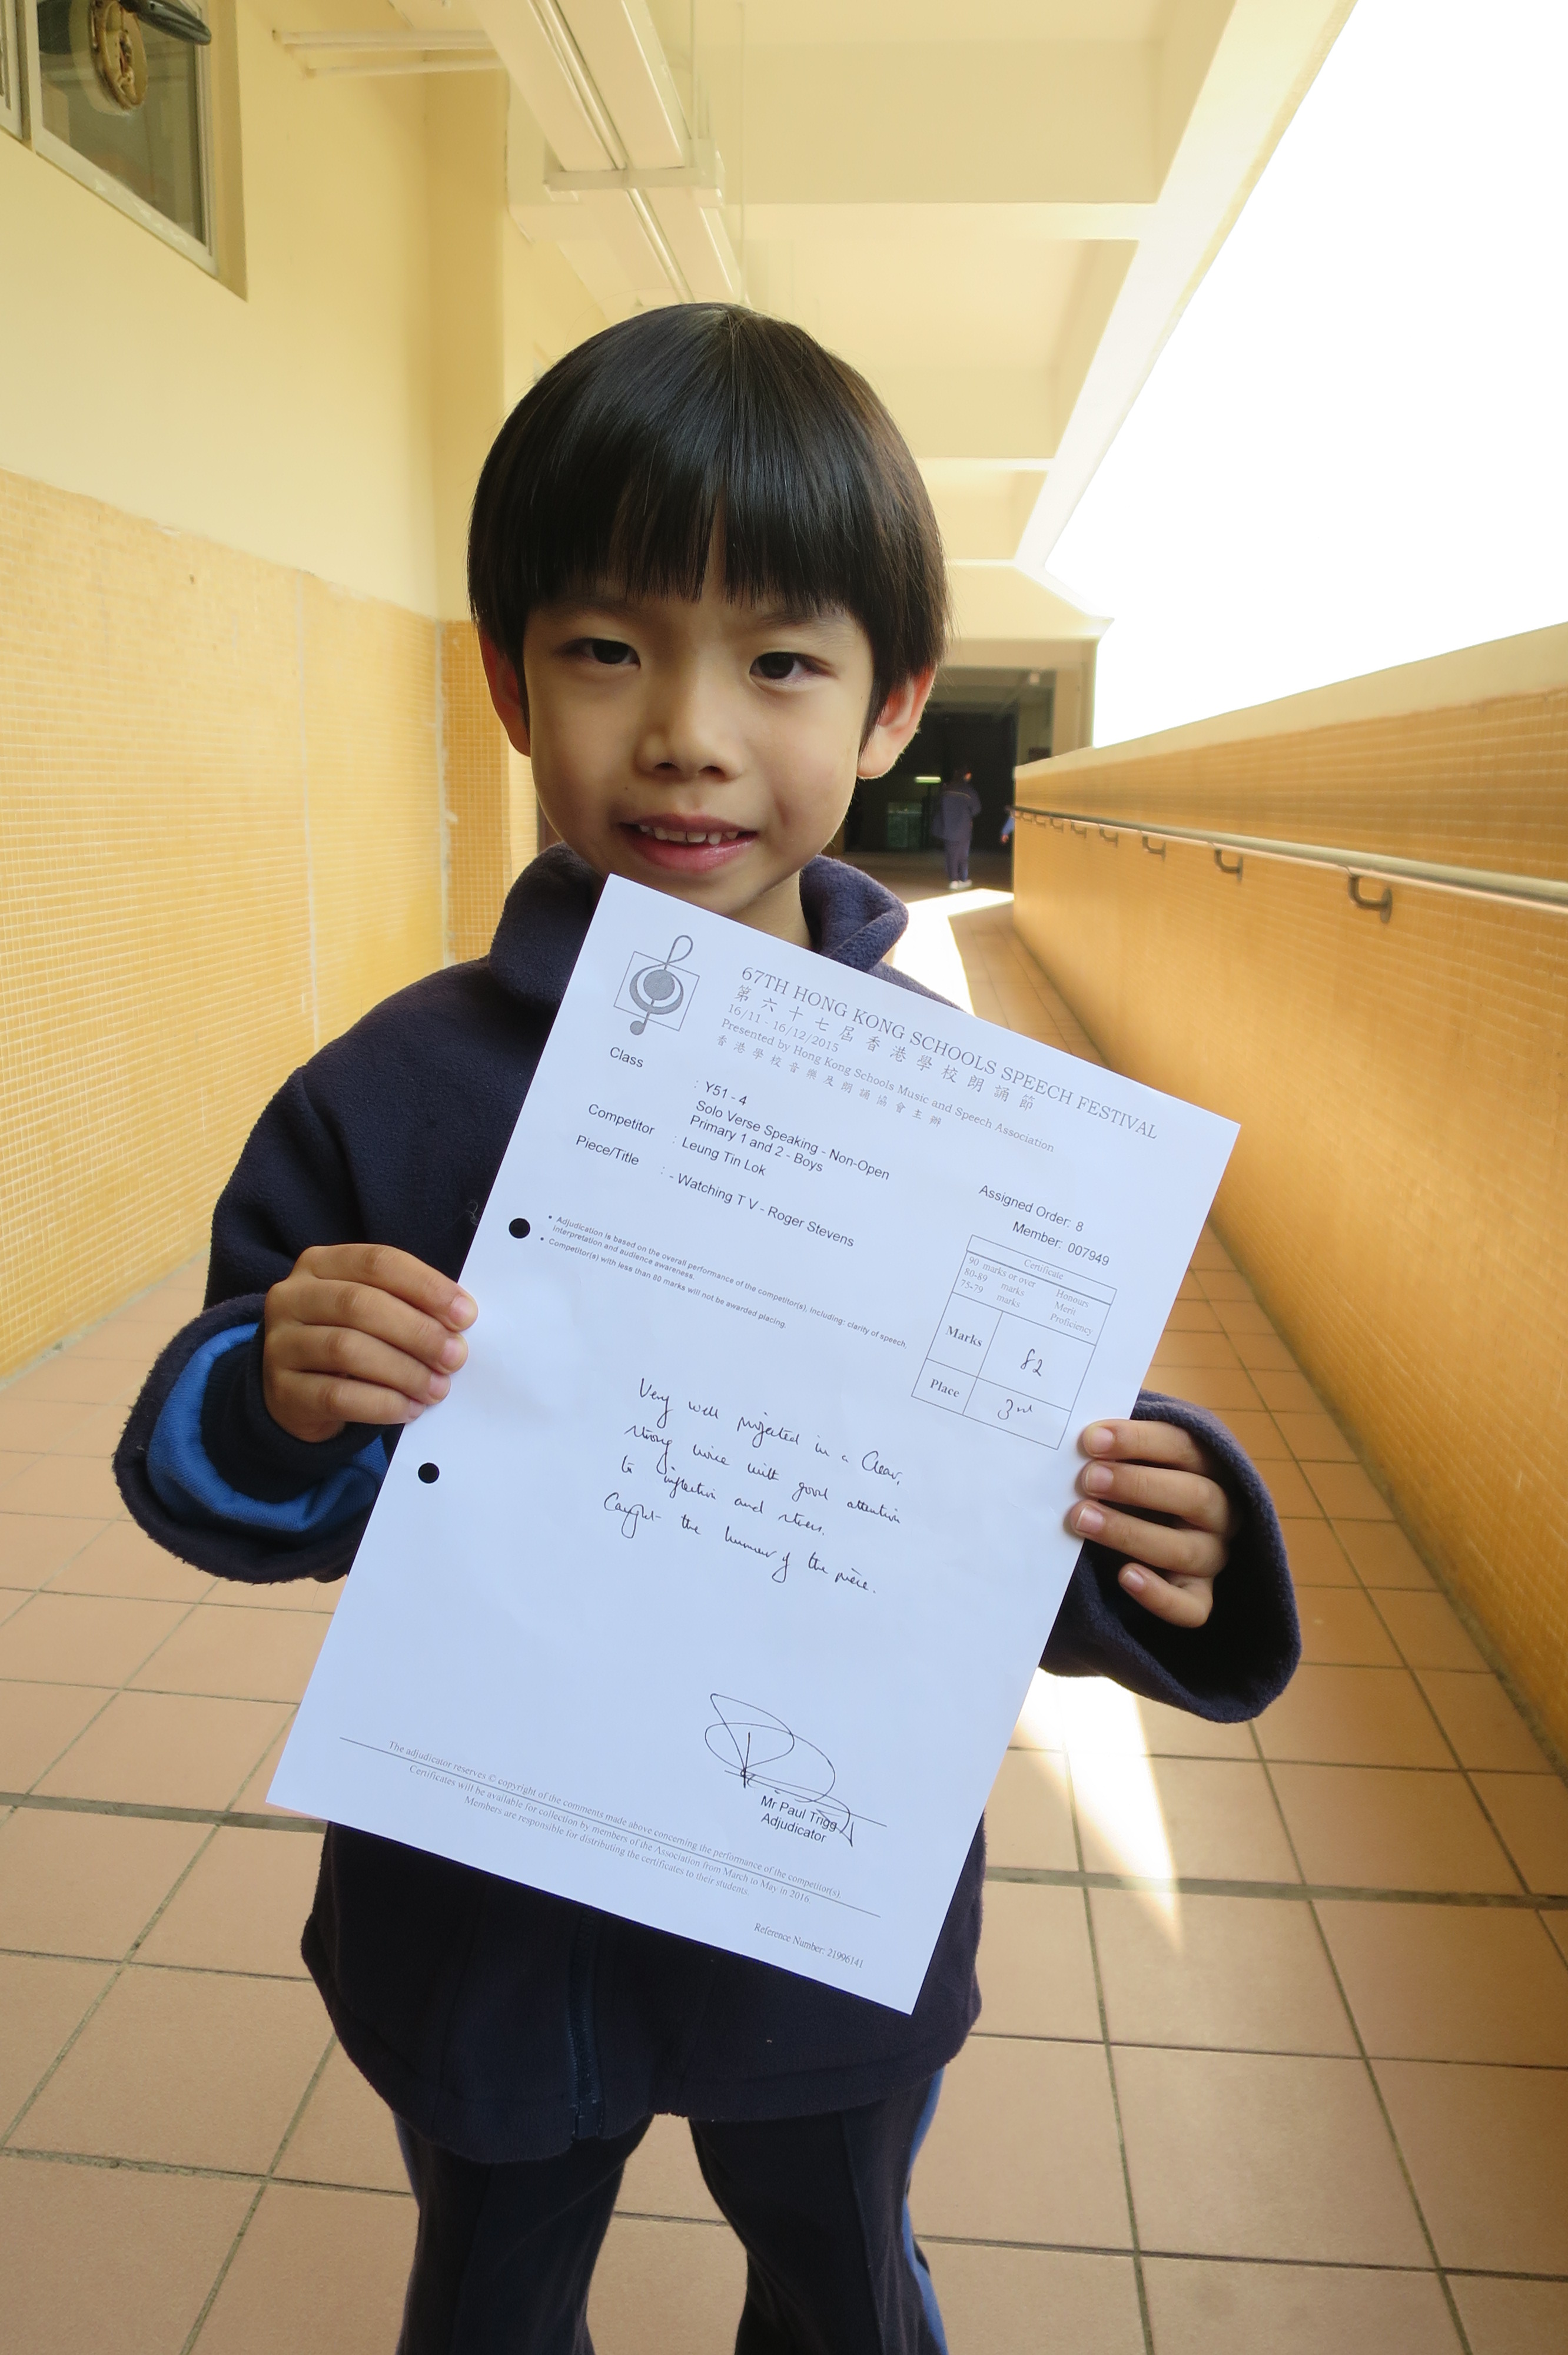 67TH HONG KONG SCHOOLS SPEECH FESTIVAL
第六十七屆香港學校朗誦節
16/11 - 16/12/2015
Presented by Hong Kong Schools Music and Speech Association
香港學校音樂及朗誦協會主辦
Class : Y51 - 4
Solo Verse Speaking - Non-Open
Primary 1 and 2 - Boys
Competitor : Leung Tin Lok
Piece/Title : - Watching T V - Roger Stevens
Assigned Order: 8
Member: 007949
• Adjudication is based on the overall performance of the competitor(s), including: clarity of speech,
interpretation and audience awareness.
• Competitor(s) with less than 80 marks will not be awarded placing.
Certificate
90 marks or over Honours
80-89 marks Merit
75-79 marks Proficiency
Marks 82
Place 3rd
Very well projected in a clear,
strong voice with good attention
to inflection and stress.
Caught the humour of the piece.
Mr Paul Trigg
Adjudicator
The adjudicator reserves © copyright of the comments made above concerning the performance of the competitor(s)
Certificates will be available for collection by members of the Association from March to May in 2016.
Members are responsible for distributing the certificates to their students.
Reference Number: 21996141